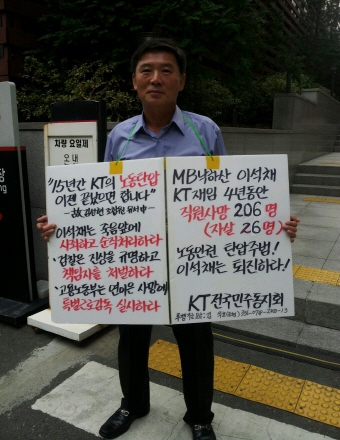 차량 요일제
"15년간 KT의 노동탄압
이젠 끝났으면 합니다"
이석채는 죽음앞에
사죄하고 순직처리하라
·검찰은 진상을 규명하고
책임자를 처벌하라
·고용노동부는 연이은 사망에
특별근로감독 실시하라
MB낙하산 이석채
KT재임 4년동안
직원사망 206명
(자살 26명)
노동인권 탄압주범!
이석채는 퇴진하라!
KT전국민주동지회